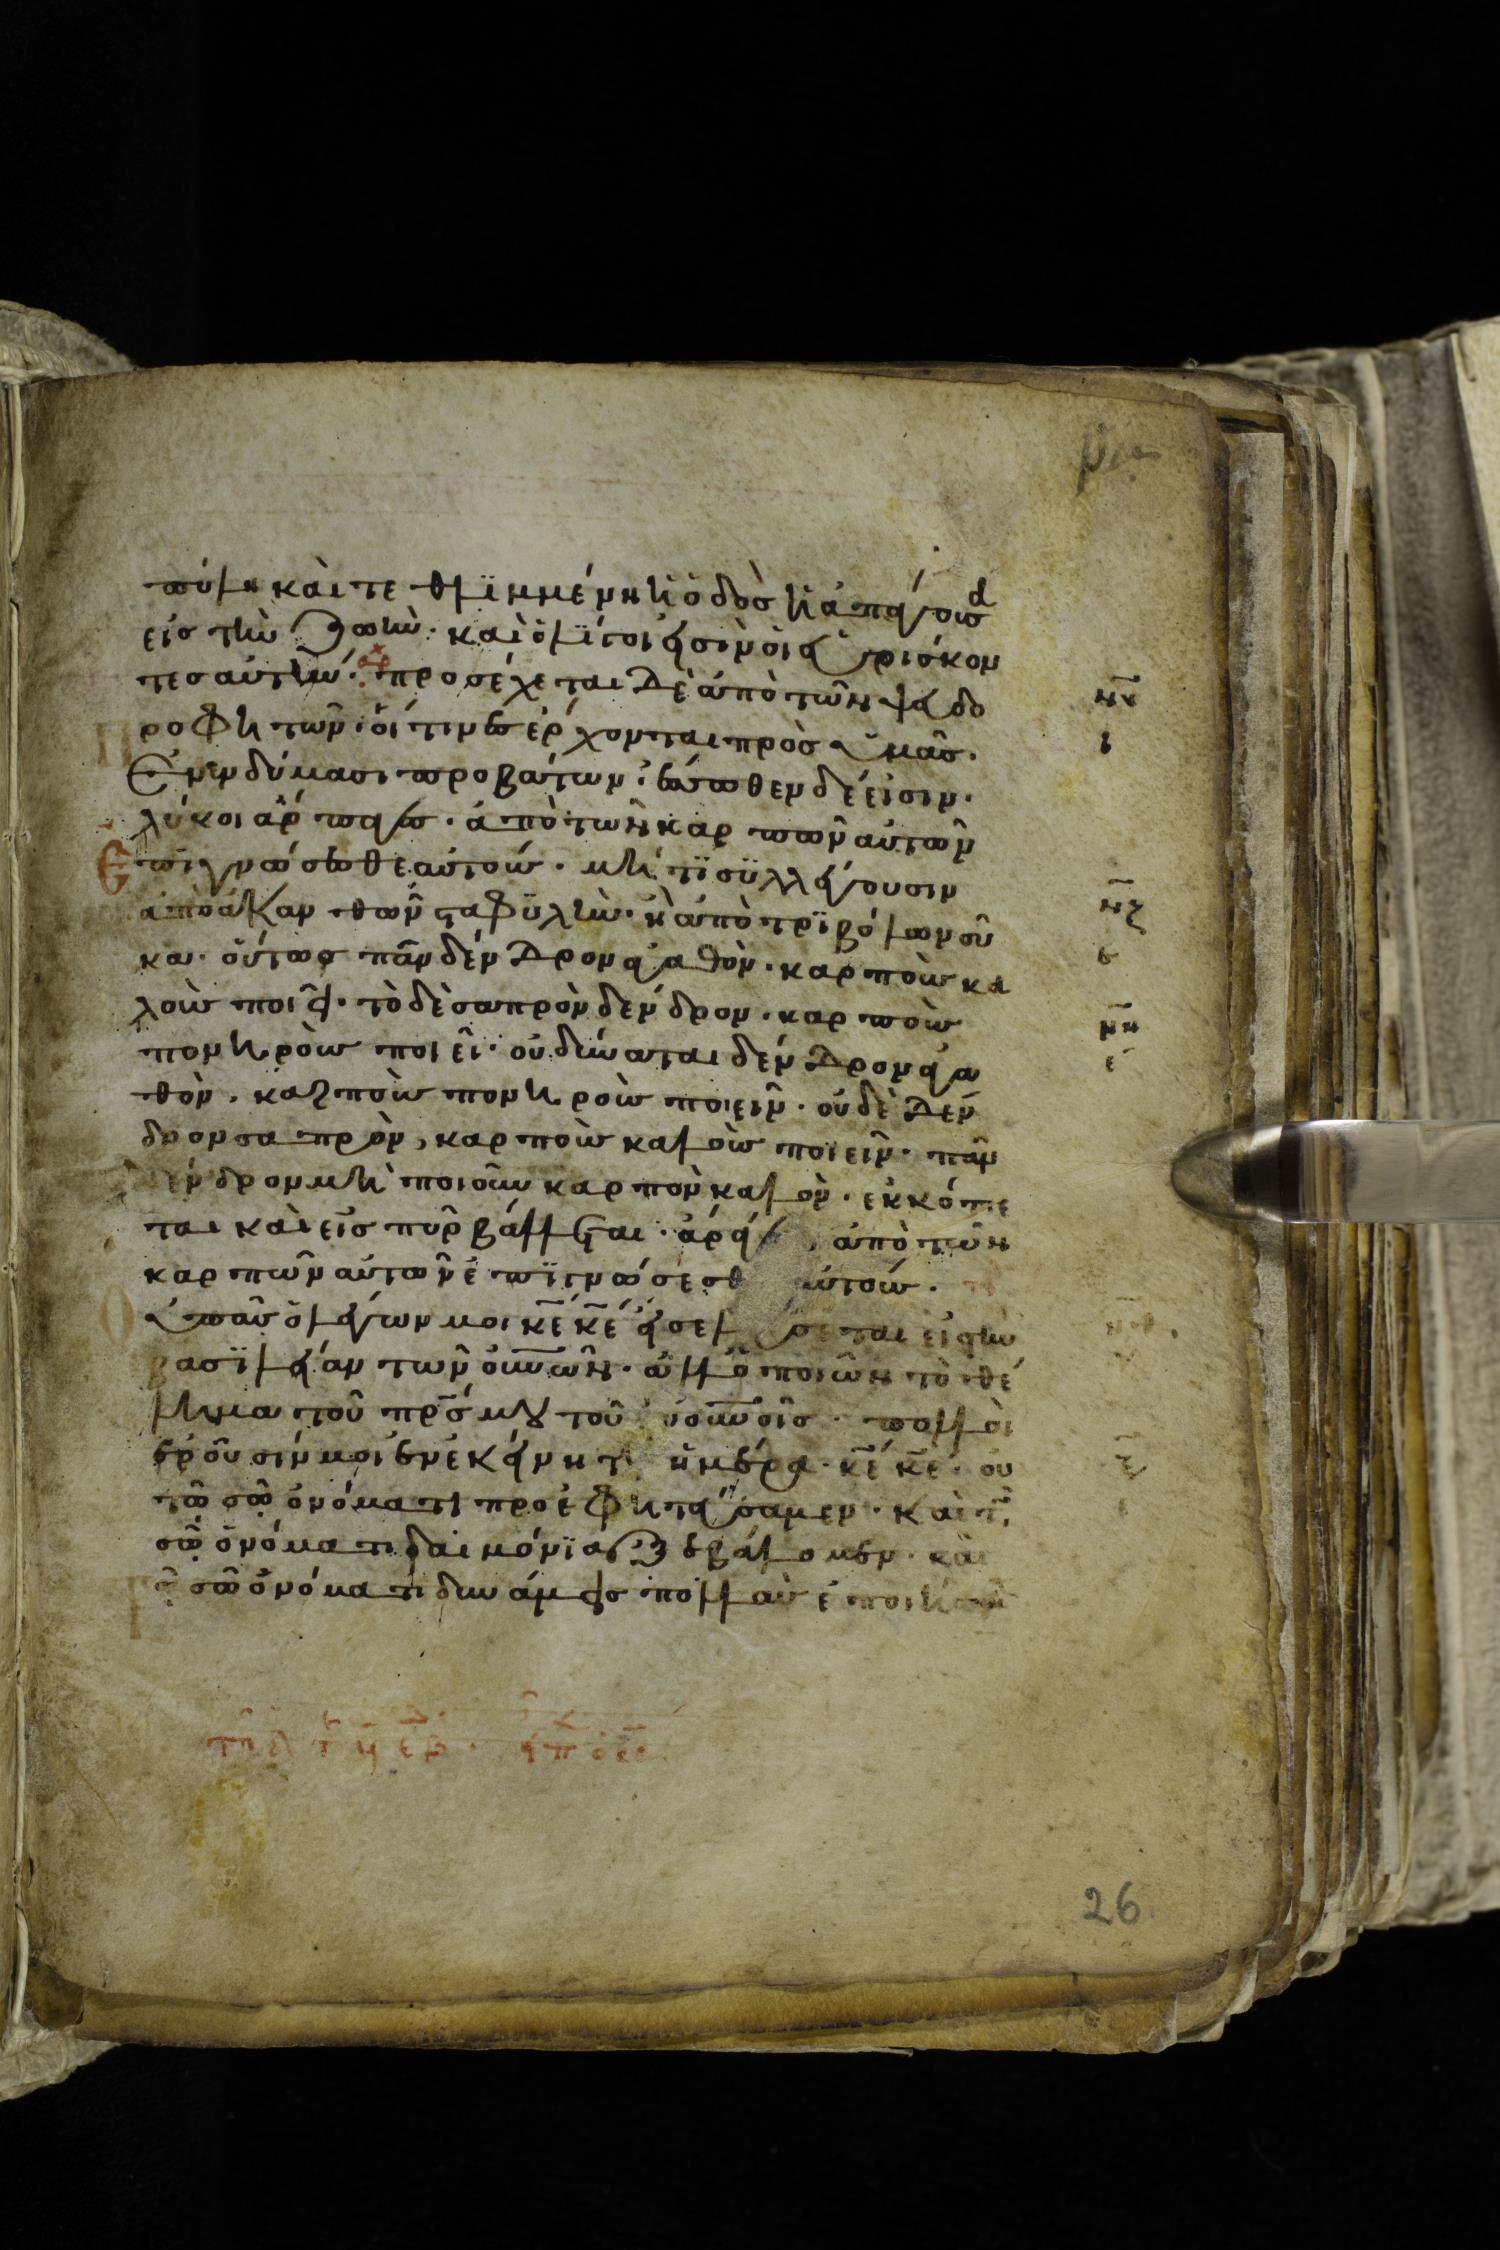 πύλη καὶ τεθλϊμμένη ἡ ὁδὸσ ἡ ἀπάγουσα
εἰσ τὴν ζωὴν· καὶ ὀλΐγοι εἰσὶν οἱ εὑρισκον
τεσ αὐτήν· προσέχεται δὲ ἀπὸ τῶν ψευδο
ροφητῶν· οἵτινεσ ἔρχονται πρὸσ ὑμᾶσ·
ἐν ἐνδύμασι προβάτων· ἔσωθεν δέ εἰσιν·
λύκοι ἅρπαγεσ· ἀπὸ τῶν καρπῶν αὐτῶν
ἐπιγνώσεσθε αὐτούσ· μή τϊ συλλέγουσιν
ἀπὸ ἀκανθῶν σταφϋλὴν· ἢ ἀπὸ τρϊβόλων σῦ
κα· οὕτωσ πᾶν δένδρον ἀγαθὸν· καρποὺσ κα
λοὺσ ποιεῖ· τὸ δὲ σαπρὸν δένδρον· καρποὺσ
πονηροὺσ ποιεῖ· οὐ δύναται δένδρον ἀγα
θὸν· καρποὺσ πονηροὺσ ποιεῖν· οὐδὲ δέν
δρον σαπρὸν, καρποὺσ καλοὺσ ποιεῖν· πᾶν
δένδρον μὴ ποιοῦν καρπὸν καλὸν· ἐκκόπτε
ται καὶ εἰσ πῦρ βάλλεται· ἀπὸ τῶν
καρπῶν αὐτῶν ἐπϊγνώσεσθ αὐτούσ·
οὐ πᾶσ ὁ λέγων μοι κ̅ε̅ κ̅ε̅ εἰσελεύσεται εἰσ τὴν
βασϊλείαν τῶν οὐνῶν· ἀλλ ὁ ποιῶν τὸ θέ
λημα τοῦ πρ̅σ̅ μου τοῦ οὐνοῖσ· πολλοὶ
ἐροῦσίν μοι ἐν ἐκείνη τ ἡμέρα· κ̅ε̅ κ̅ε̅· οὐ
τῶ σῶ ὀνόματι προεφητεύσαμεν· καὶ τῶ
σῶ ὀνόματι δαιμόνϊα ἐξεβάλομεν· καὶ
τῶ σῶ ὀνόματι δυνάμεισ πολλὰσ ἐποιήσαμ
ν̅ϛ̅
ι
ν̅ζ̅
ε
ν̅η̅
ε
26